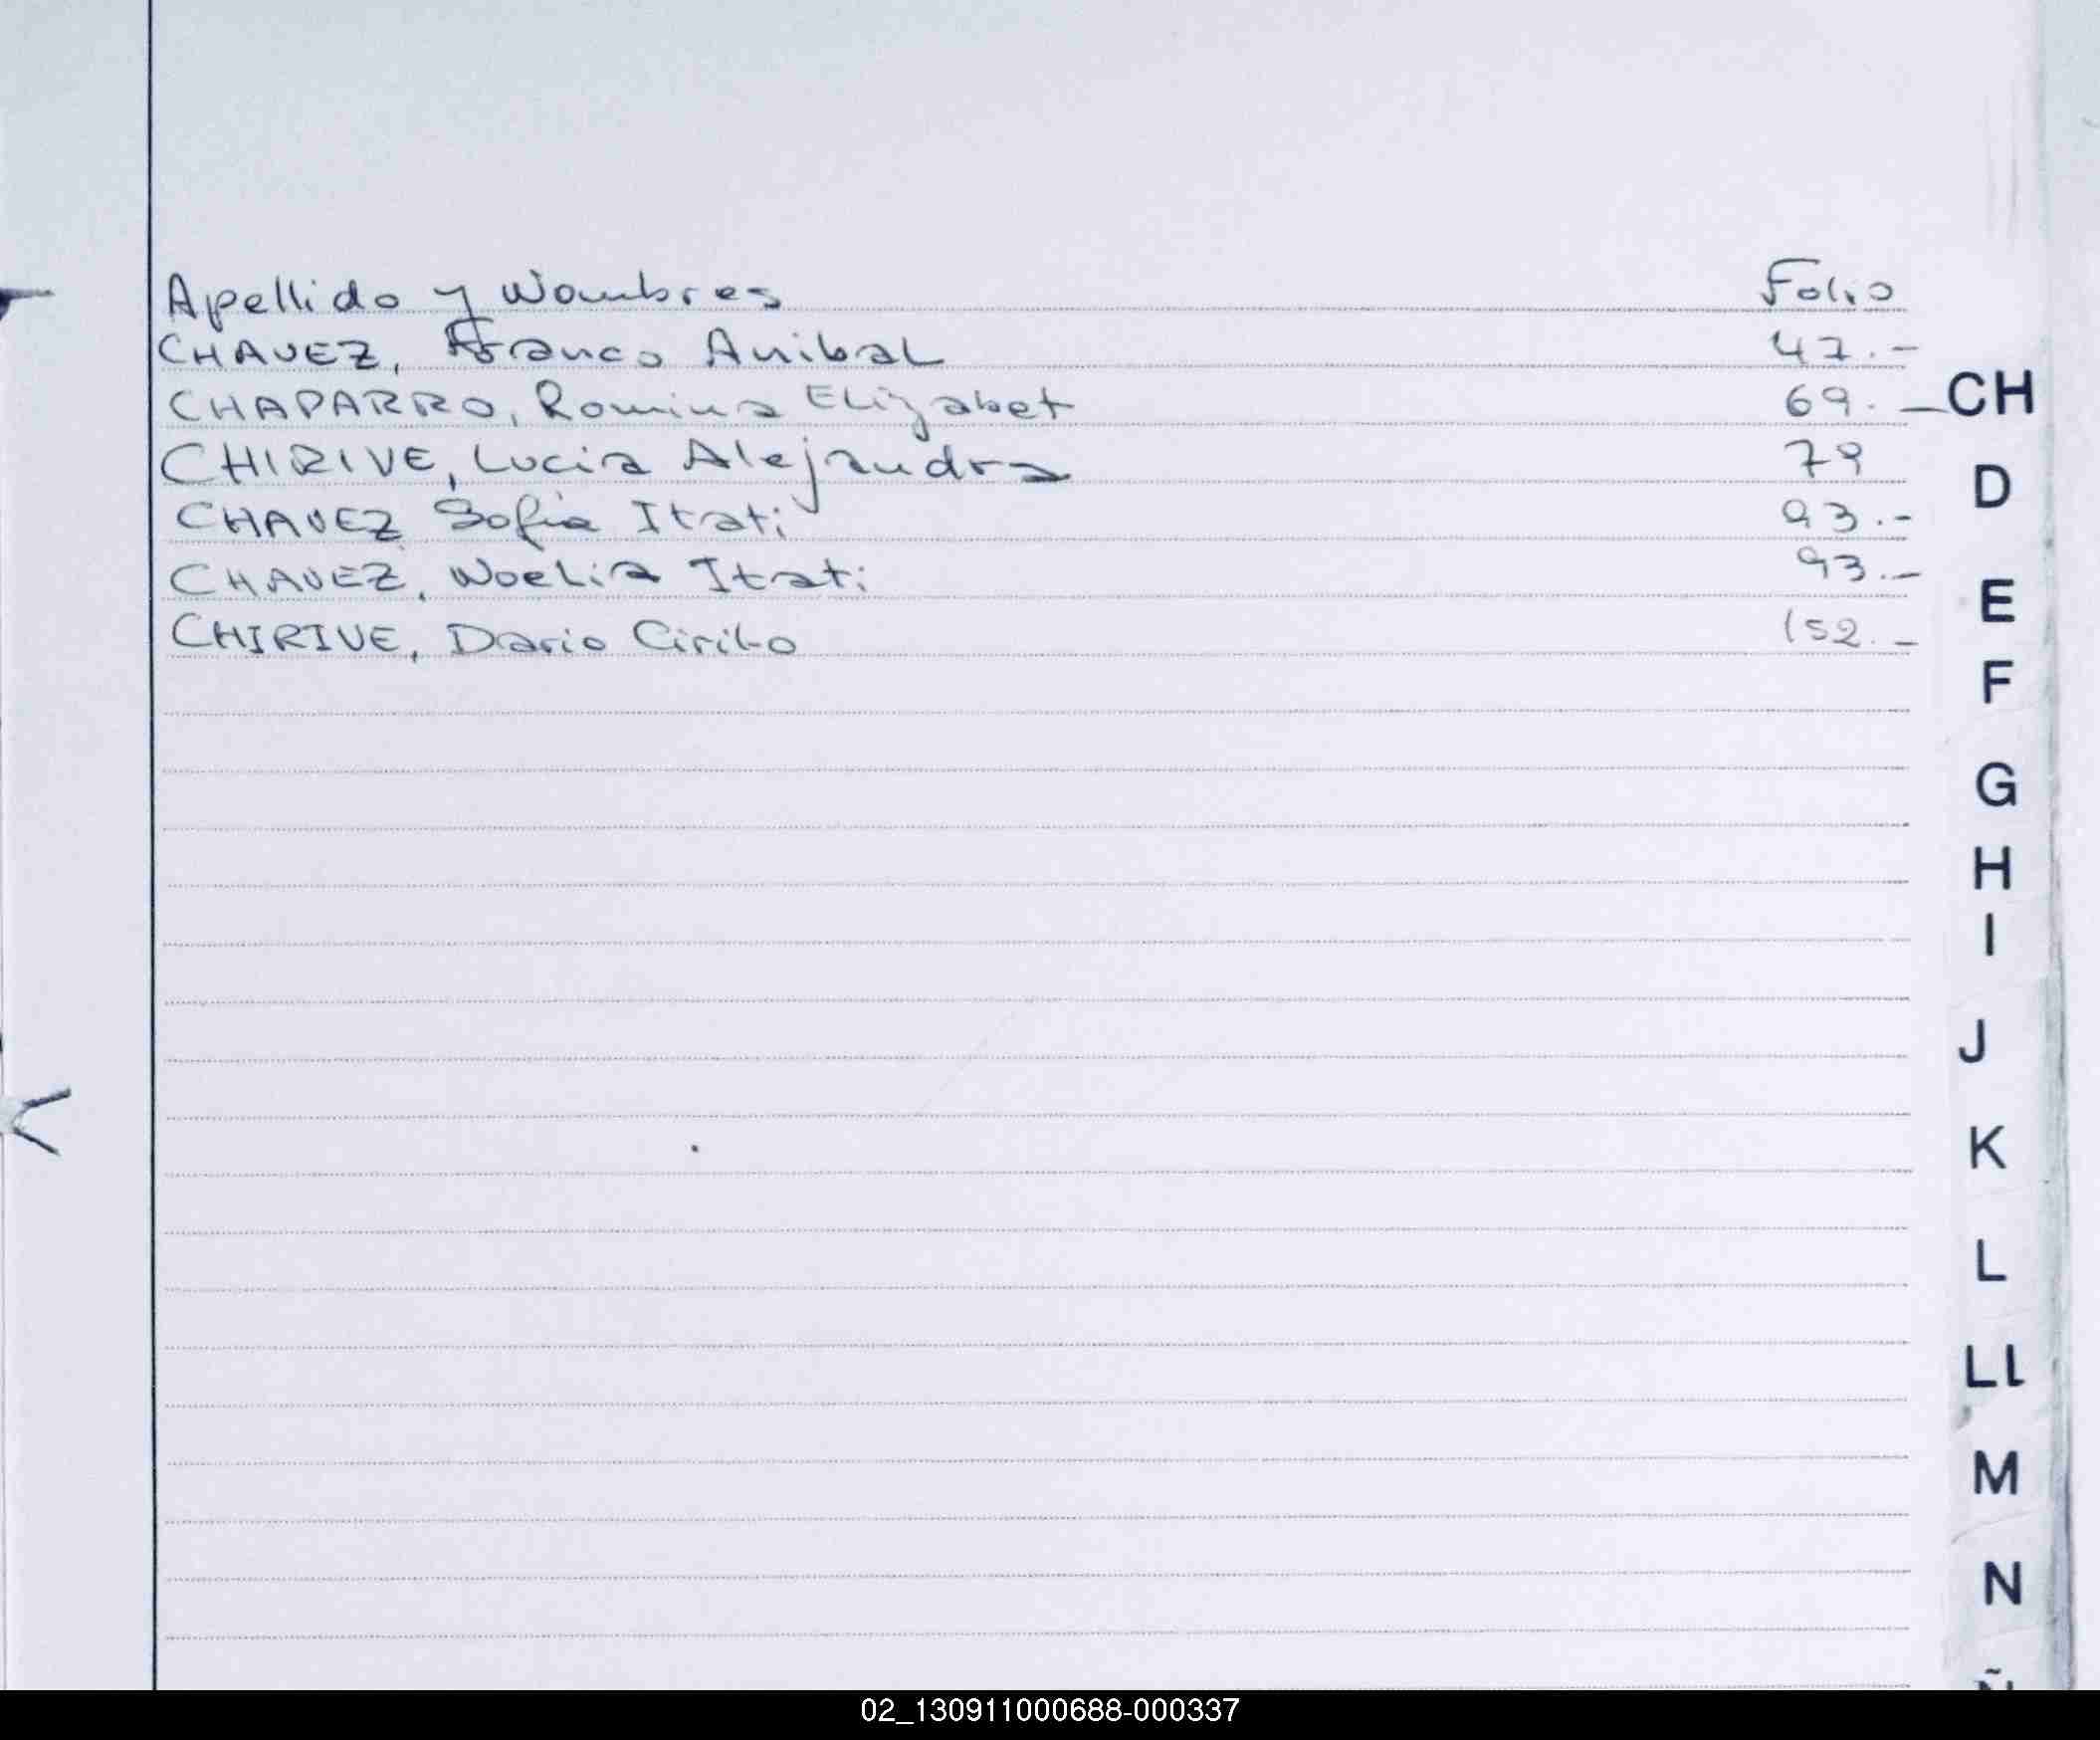 Apellido y Nombres Folio
CHAVEZ, Franco Anibal 47.-
CHAPARRO, Romina Elizabet 69.-
CHIRIVE, Lucia Alejandra 79
CHAVEZ Sofia Itati 93.-
CHAVEZ, Noelia Itati 93.-
CHIRIVE, Dario Cirilo 152.-
CH
D
E
F
G
H
I
J
K
L
LL
M
N
Ñ
02_130911000688-000337